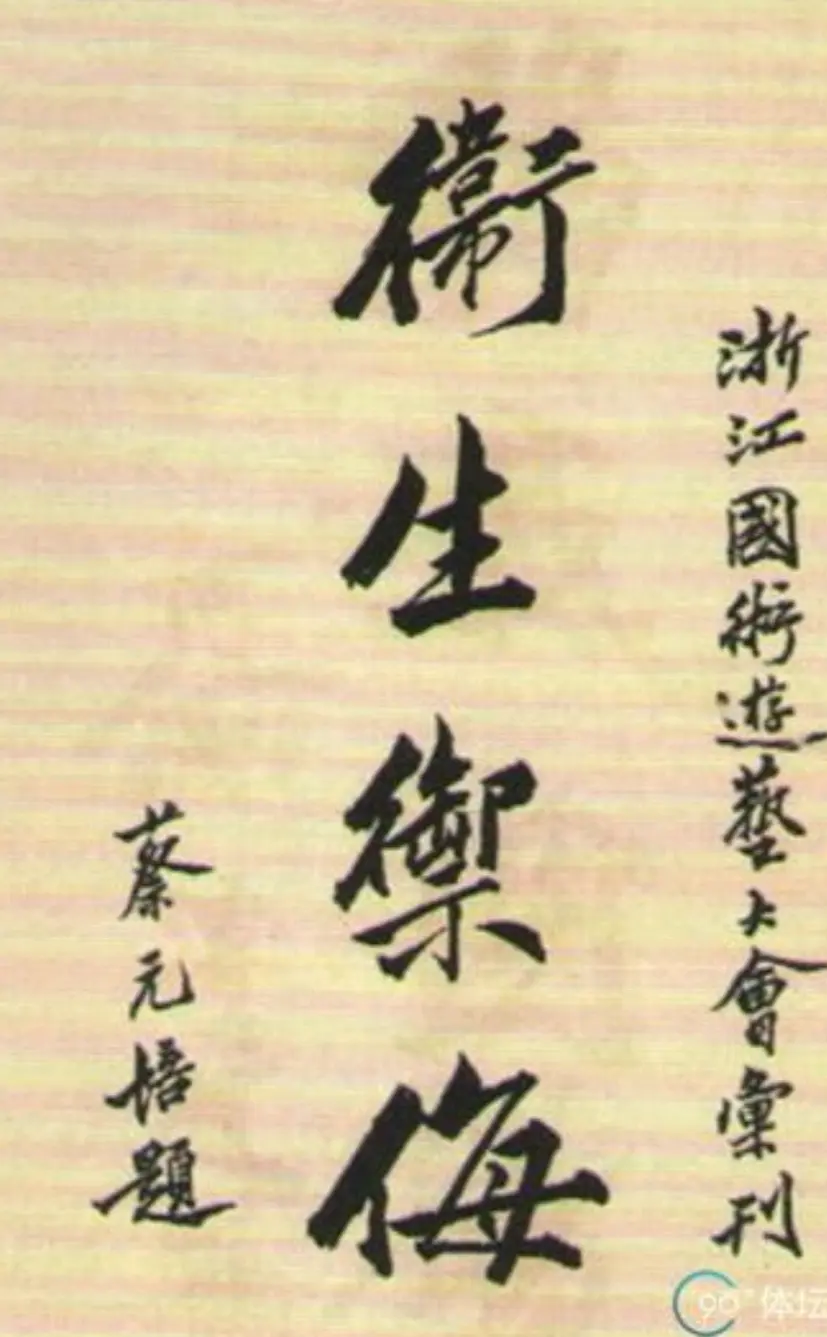 浙江國術遊藝大會彙刊
衞生禦侮
蔡元培題
90°体坛